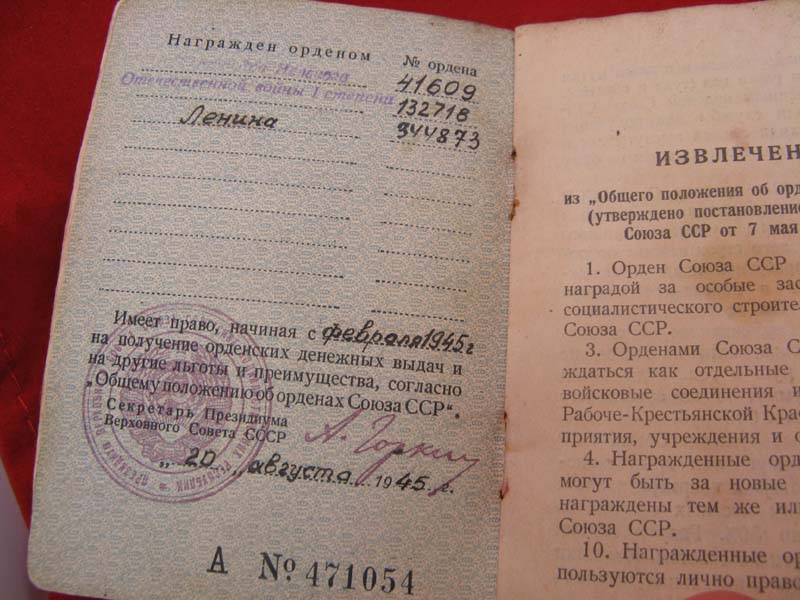 Награжден орденом
№ ордена
41609
Отечественной войны I степени 132718
Ленина 344873
Имеет право, начиная с февраля 1945 г
на получение орденских денежных выдач и
на другие льготы и преимущества, согласно
„Общему положению об орденах Союза ССР“.
Секретарь Президиума
Верховного Совета СССР
А. Горкин
„20„ августа 1945 г.
А № 471054
ИЗВЛЕЧЕН
из „Общего положения об орд
(утверждено постановление
Союза ССР от 7 мая
1. Орден Союза ССР
наградой за особые зас
социалистического строите
Союза ССР.
3. Орденами Союза С
ждаться как отдельные
войсковые соединения и
Рабоче-Крестьянской Крас
приятия, учреждения и о
4. Награжденные орд
могут быть за новые
награждены тем же или
Союза ССР.
10. Награжденные ор
пользуются лично право